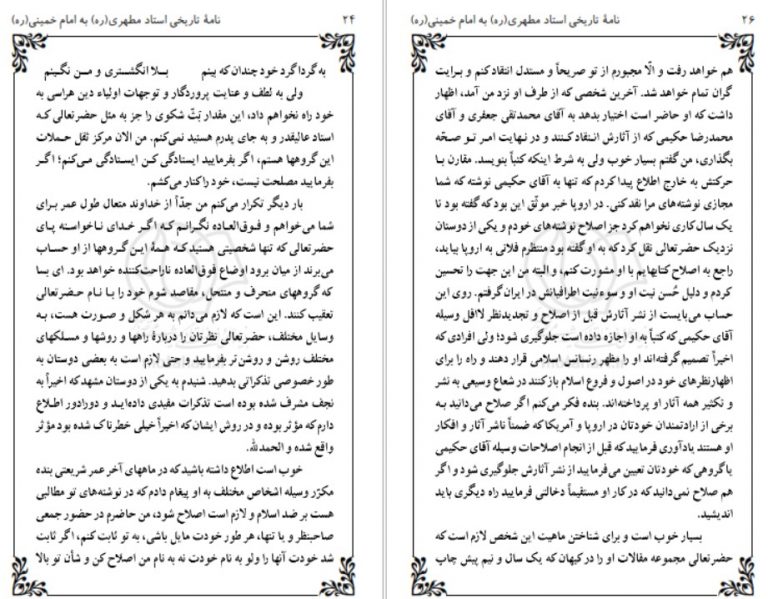 ۲۴ نامهٔ تاریخی استاد مطهری(ره) به امام خمینی(ره)
به گرداگرد خود چندان که بینم بلا انگشتری و من نگینم
ولی به لطف و عنایت پروردگار و توجهات اولیاء دین هراسی به
خود راه نخواهم داد، این مقدار بَثّ شکوی را جز به مثل حضرتعالی که
استاد عالیقدر و به جای پدرم هستید نمی‌کنم. من الان مرکز ثقل حملات
این گروهها هستم، اگر بفرمایید ایستادگی کن ایستادگی می‌کنم؛ اگر
بفرمایید مصلحت نیست، خود را کنار می‌کشم.
بار دیگر تکرار می‌کنم من جدّاً از خداوند متعال طول عمر برای
شما می‌خواهم و فوق‌العاده نگرانم که اگر خدای ناخواسته پای
حضرتعالی که تنها شخصیتی هستید که همهٔ این گروهها از او حساب
می‌برند از میان برود اوضاع فوق‌العاده ناراحت‌کننده خواهد بود. ای بسا
که گروههای منحرف و منتحل، مقاصد شوم خود را با نام حضرتعالی
تعقیب کنند. این است که لازم می‌دانم به هر شکل و صورت هست، به
وسایل مختلف، حضرتعالی نظرتان را دربارهٔ راهها و روشها و مسلکهای
مختلف روشن و روشن‌تر بفرمایید و حتی لازم است به بعضی دوستان به
طور خصوصی تذکراتی بدهید. شنیدم به یکی از دوستان مشهد که اخیراً به
نجف مشرف شده بوده است تذکرات مفیدی داده‌اید و دورادور اطلاع
دارم که مؤثر بوده و در روش ایشان که اخیراً خیلی خطرناک شده بود مؤثر
واقع شده و الحمدلله.
خوب است اطلاع داشته باشید که در ماههای آخر عمر شریعتی بنده
مکرّر وسیله اشخاص مختلف به او پیغام دادم که در نوشته‌های تو مطالبی
هست بر ضد اسلام و لازم است اصلاح شود، من حاضرم در حضور جمعی
صاحبنظر و یا تنها، هر طور خودت مایل باشی، به تو ثابت کنم، اگر ثابت
شد خودت آنها را ولو به نام خودت نه به نام من اصلاح کن و شأن تو بالا
۲۶ نامهٔ تاریخی استاد مطهری(ره) به امام خمینی(ره)
هم خواهد رفت و الّا مجبورم از تو صریحاً و مستدل انتقاد کنم و برایت
گران تمام خواهد شد. آخرین شخصی که از طرف او نزد من آمد، اظهار
داشت که او حاضر است اختیار بدهد به آقای محمدتقی جعفری و آقای
محمدرضا حکیمی که از آثارش انتقاد کنند و در نهایت امر تو صحّه
بگذاری، من گفتم بسیار خوب ولی به شرط اینکه کتباً بنویسد. مقارن با
حرکتش به خارج اطلاع پیدا کردم که تنها به آقای حکیمی نوشته که شما
مجازی نوشته‌های مرا نقد کنی. در اروپا خبر موثّق این بود که گفته بود تا
یک سال کاری نخواهم کرد جز اصلاح نوشته‌های خودم و یکی از دوستان
نزدیک حضرتعالی نقل کرد که به او گفته بود منتظرم فلانی به اروپا بیاید،
راجع به اصلاح کتابهایم با او مشورت کنم، و البته من این جهت را تحسین
کردم و دلیل حُسن نیت او و سوءنیت اطرافیانش در ایران گرفتم. روی این
حساب می‌بایست از نشر آثارش قبل از اصلاح و تجدیدنظر لااقل وسیله
آقای حکیمی که کتباً به او اجازه داده است جلوگیری شود؛ ولی افرادی که
اخیراً تصمیم گرفته‌اند او را مظهر رنسانس اسلامی قرار دهند و راه را برای
اظهارنظرهای خود در اصول و فروع اسلام باز کنند در شعاع وسیعی به نشر
و تکثیر همه آثار او پرداخته‌اند. بنده فکر می‌کنم اگر صلاح می‌دانید به
برخی از ارادتمندان خودتان در اروپا و آمریکا که ضمناً ناشر آثار و افکار
او هستند یادآوری فرمایید که قبل از انجام اصلاحات وسیله آقای حکیمی
یا گروهی که خودتان تعیین می‌فرمایید از نشر آثارش جلوگیری شود و اگر
هم صلاح نمی‌دانید که در کار او مستقیماً دخالتی فرمایید راه دیگری باید
اندیشید.
بسیار خوب است و برای شناختن ماهیت این شخص لازم است که
حضرتعالی مجموعه مقالات او را در کیهان که یک سال و نیم پیش چاپ